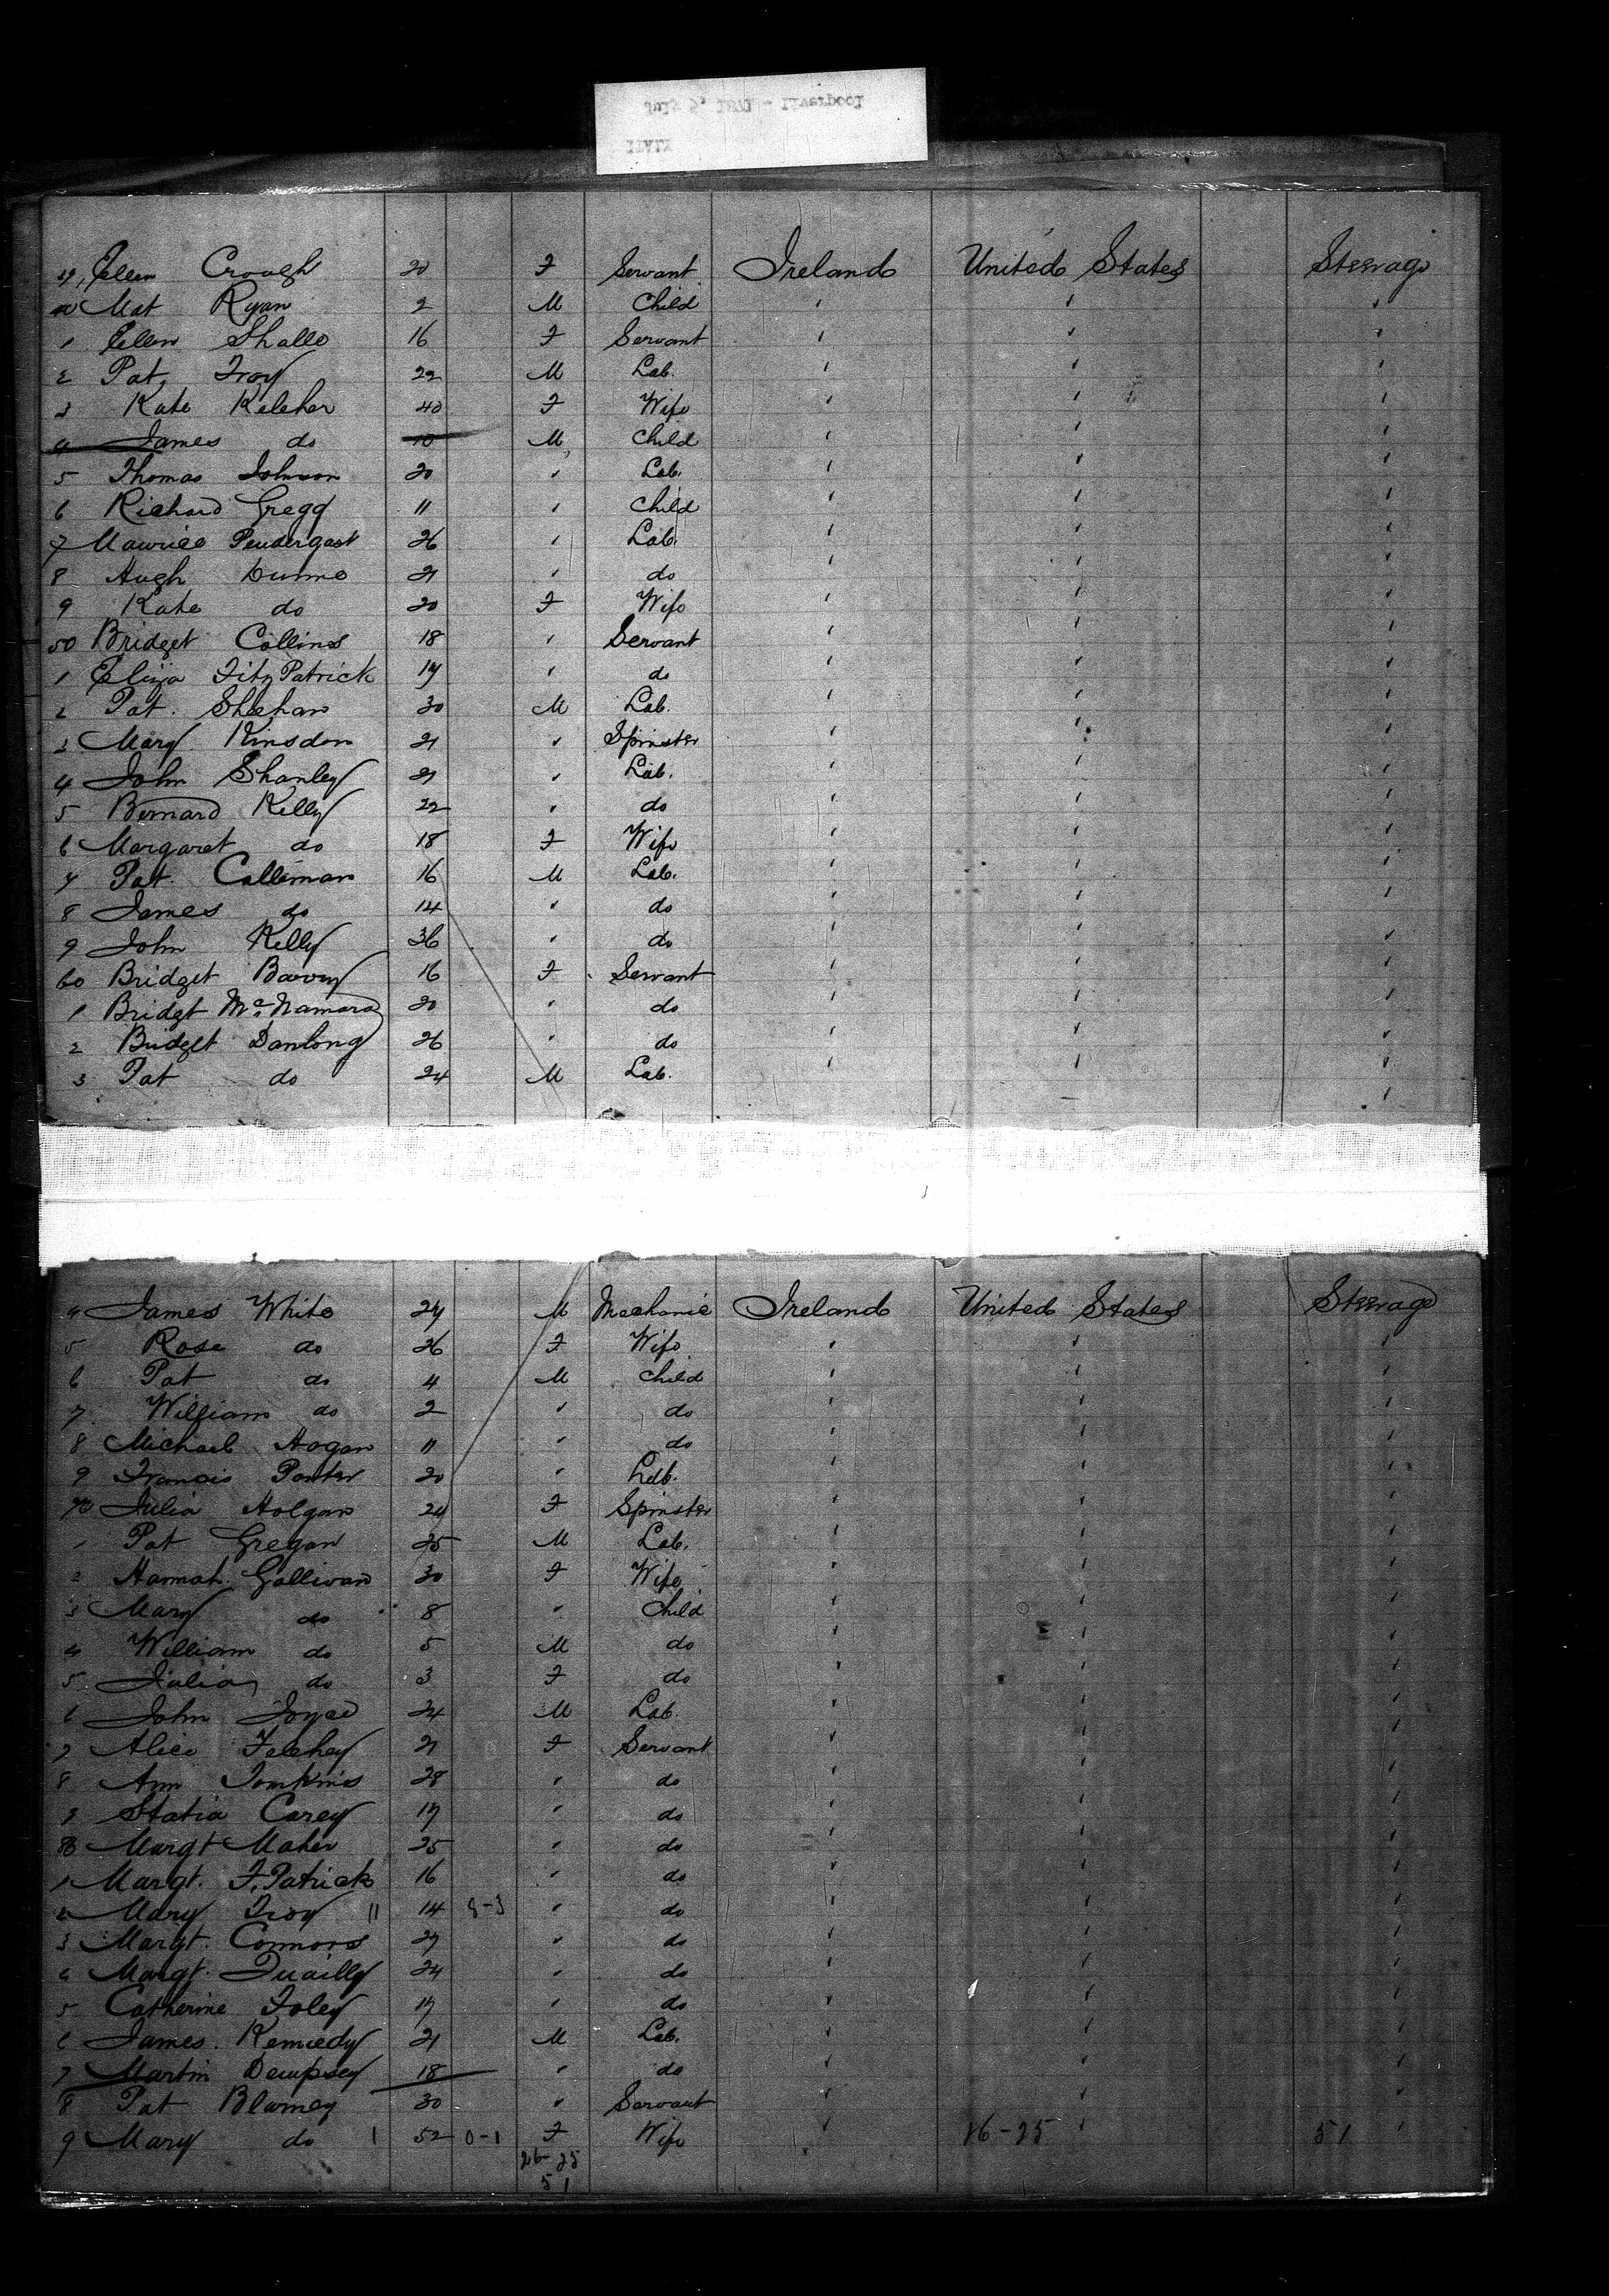 39 Ellen Crough 20 F Servant Ireland United States Steerage
40 Mat Ryan 2 M Child " " "
1 Ellen Shallo 16 F Servant " " "
2 Pat. Troy 22 M Lab. " " "
3 Kate Keleher 40 F Wife " " "
4 James do 10 M Child " " "
5 Thomas Johnson 20 " Lab. " " "
6 Richard Gregg 11 " Child " " "
7 Maurice Pendergast 26 " Lab. " " "
8 Hugh Dunne 21 " do " " "
9 Kate do 20 F Wife " " "
50 Bridget Collins 18 " Servant " " "
1 Eliza FitzPatrick 17 " do " " "
2 Pat. Sheehan 30 M Lab. " " "
3 Mary Kinsdon 21 " Spinster " " "
4 John Shanley 21 " Lab. " " "
5 Bernard Kelly 22 " do " " "
6 Margaret do 18 F Wife " " "
7 Pat. Calliman 16 M Lab. " " "
8 James do 14 " do " " "
9 John Kelly 36 " do " " "
60 Bridget Barry 16 F Servant " " "
1 Bridgt McNamara 20 " do " " "
2 Bridget Danlong 26 " do " " "
3 Pat do 24 M Lab. " " "
4 James White 27 M Mechanic Ireland United States Steerage
5 Rose do 26 F Wife " " "
6 Pat do 4 M Child " " "
7 William do 2 " do " " "
8 Michael Hogan 11 " do " " "
9 Francis Ponter 20 " Lab. " " "
70 Julia Holgan 24 F Spinster " " "
1 Pat Gregan 25 M Lab. " " "
2 Hannah Gallivan 30 F Wife " " "
3 Mary do 8 " Child " " "
4 William do 5 M do " " "
5 Julia do 3 F do " " "
6 John Joyce 24 M Lab. " " "
7 Alice Feehey 21 F Servant " " "
8 Ann Tompkins 28 " do " " "
9 Statia Carey 17 " do " " "
80 Margt Maher 25 " do " " "
1 Margt. F.Patrick 16 " do " " "
2 Mary Troy 11 14 8-3 " do " " "
3 Margt. Connors 27 " do " " "
4 Margt. Quailly 24 " do " " "
5 Catherine Foley 17 " do " " "
6 James. Kennedy 21 M Lab. " " "
7 Martin Dempsey 18 " do " " "
8 Pat Blamey 30 " Servant " " "
9 Mary do 1 52 0-1 F Wife " 26-25 " 51 "
26-25
51